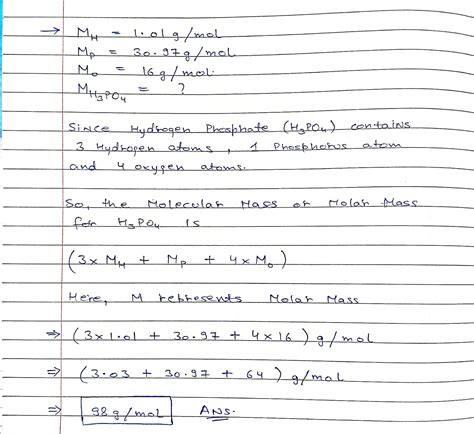 → M_H = 1.01 g/mol
M_P = 30.97 g/mol
M_O = 16 g/mol.
M_H₃PO₄ = ?
Since Hydrogen Phosphate (H₃PO₄) contains
3 Hydrogen atoms, 1 Phosphorus atom
and 4 oxygen atoms.
So, the Molecular Mass or Molar Mass
for H₃PO₄ is
(3×M_H + M_P + 4×M_O)
Here, M represents Molar Mass
⇒ (3×1.01 + 30.97 + 4×16) g/mol
⇒ (3.03 + 30.97 + 64) g/mol
⇒ 98 g/mol ANS.